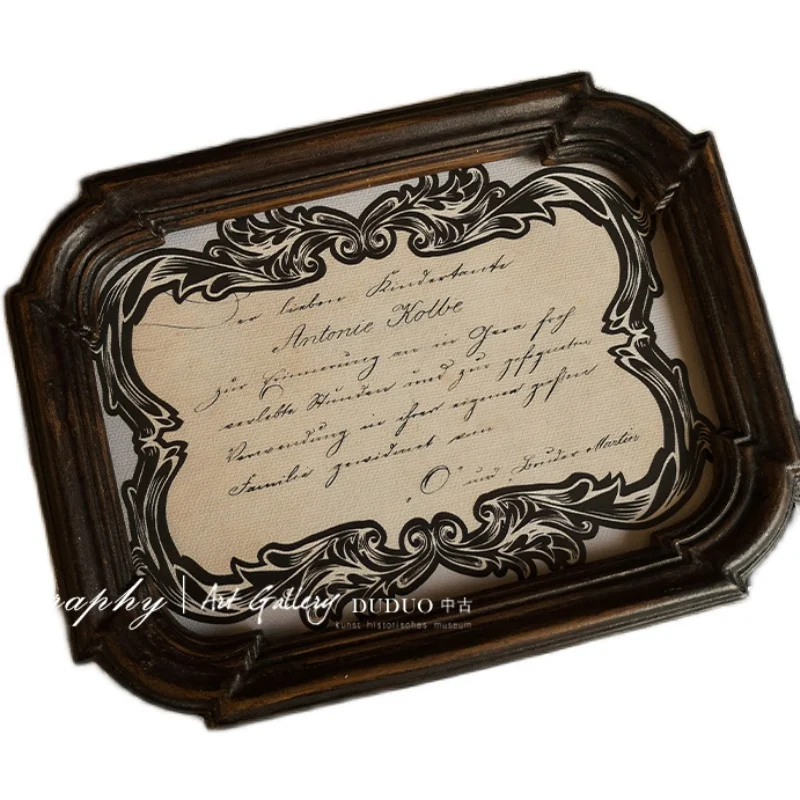 Der lieben Kindertante
Antonie Kolbe
zur Erinnerung an in Gera froh
verlebte Stunden und zur gesegneten
Verwendung in ihrer eigenen großen
Familie gewidmet von
„O“ und „Bruder Martin
raphy | Art Gallery DUDUO 中古
kunst historisches museum